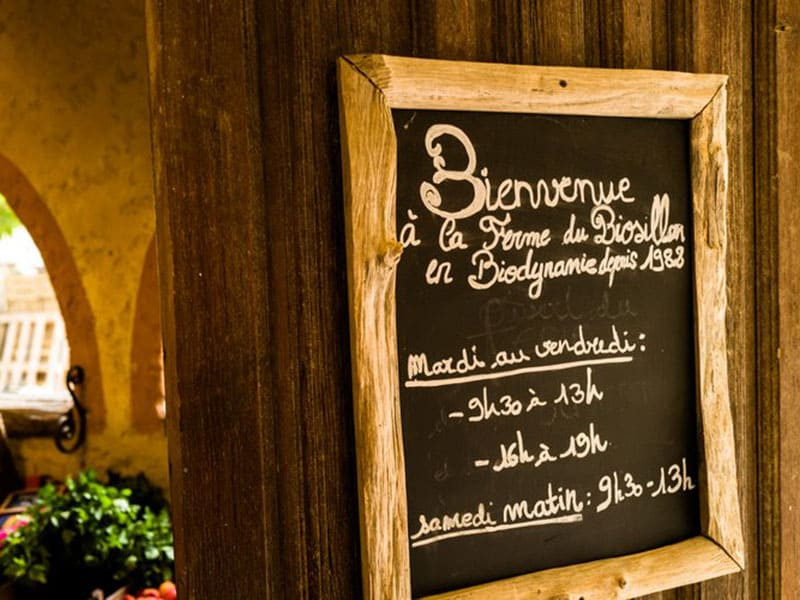 Bienvenue
à la Ferme du Biosillon
en Biodynamie depuis 1988
Mardi au vendredi :
- 9h30 à 13h
- 16h à 19h
samedi matin : 9h30 - 13h